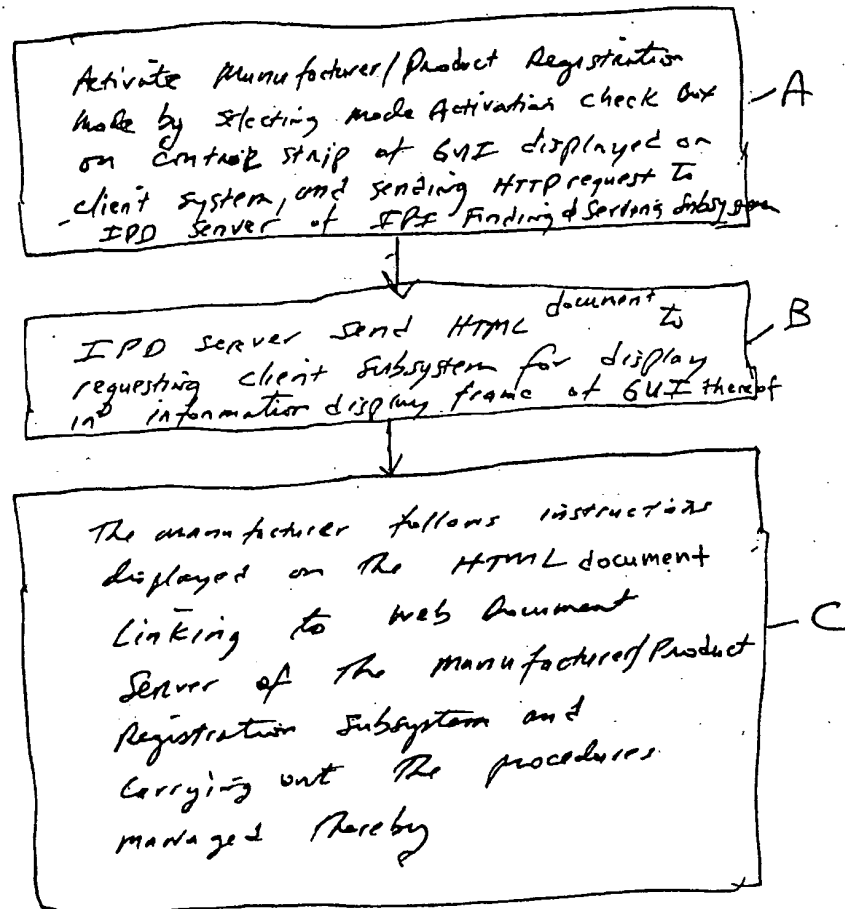 Activate Manufacturer/Product Registration
mode by selecting mode Activation check Box
on control strip of GUI displayed on
client system, and sending HTTP request to
IPD server of IPI Finding & Serving Subsystem
A
IPD server send HTML document to
requesting client subsystem for display
in information display frame of GUI thereof
B
The manufacturer follows instructions
displayed on the HTML document
Linking to web Document
Server of the manufacturer/Product
Registration subsystem and
Carrying out the procedures
managed thereby
C